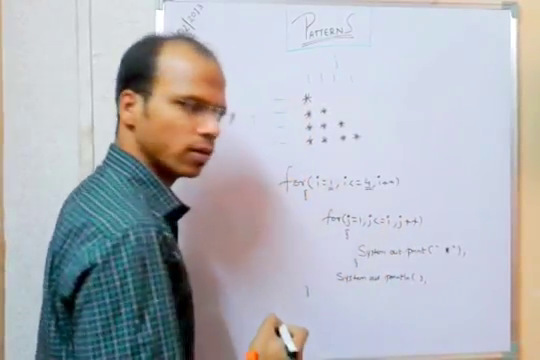 2013
PATTERNS
*
* *
* * *
* * * *
for(i=1, i<=4, i++)
{
for(j=1, j<=i, j++)
{
System.out.print(" *"),
}
System.out.println( ),
}